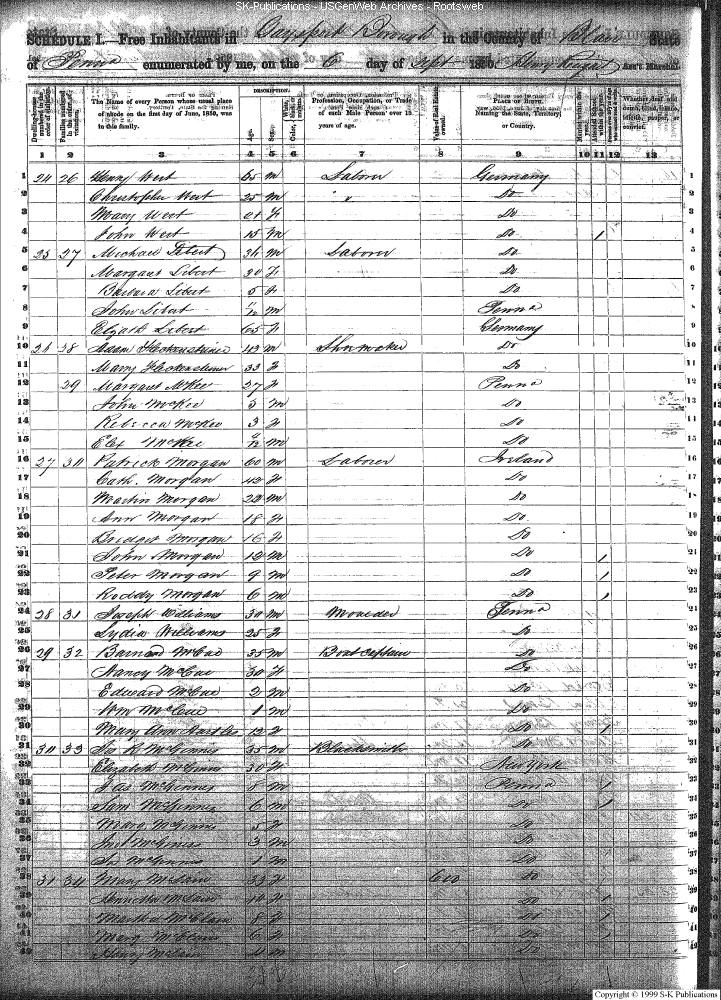 SK-Publications - USGenWeb Archives - Rootsweb
SCHEDULE I. Free Inhabitants in Gaysport Borough in the County of Blair State
of Penna enumerated by me, on the 6 day of Sept 1850. Ass't Marshal.
Dwelling-houses numbered in the order of visitation. Families numbered in the order of visitation. The Name of every Person whose usual place of abode on the first day of June, 1850, was in this family. DESCRIPTION. Age. Sex. Color, White, black, or mulatto. Profession, Occupation, or Trade of each Male Person over 15 years of age. Value of Real Estate owned. PLACE OF BIRTH. Naming the State, Territory, or Country. Married within the year. Attended School within the year. Whether deaf and dumb, blind, insane, idiotic, pauper, or convict.
1 2 3 4 5 6 7 8 9 10 11 12 13
1 24 26 Henry West 65 m Laborer Germany 1
2 Christopher West 25 m " Do 2
3 Mary West 21 f Do 3
4 John West 15 m Do / 4
5 25 27 Michael Libert 36 m Laborer Do 5
6 Margaret Libert 30 f Do 6
7 Barbara Libert 5 f Do 7
8 John Libert m Penna 8
9 Elizath Libert 65 f Germany 9
10 26 28 Adam Fleckensteiner 43 m Shoemaker Do 10
11 Mary Fleckensteiner 33 f Do 11
12 29 Margaret McKee 27 f Penna 12
13 John McKee 5 m Do 13
14 Rebecca McKee 3 f Do 14
15 McKee m Do 15
16 27 30 Patrick Morgan 60 m Laborer Ireland 16
17 Cath. Morgan 42 f Do 17
18 Martin Morgan 22 m Do 18
19 Ann Morgan 18 f Do 19
20 Bridget Morgan 16 f Do 20
21 John Morgan 12 m Do / 21
22 Peter Morgan 9 m Do / 22
23 Roddy Morgan 6 m Do / 23
24 28 31 Joseph Williams 30 m Moulder Penna 24
25 Lydia Williams 25 f Do 25
26 29 32 Barnard McCue 35 m Boat captain Do 26
27 Nancy McCue 30 f Do 27
28 Edward McCue 2 m Do 28
29 Wm McCue 1 m Do 29
30 Mary Ann 12 f Do / 30
31 30 33 Jas R McGinnis 35 m Blacksmith Do 31
32 Elizabeth McGinnis 30 f New York 32
33 Jas McGinnis 8 m Penna / 33
34 Sam McGinnis 6 m Do / 34
35 Marg McGinnis 5 f Do 35
36 McGinnis 3 m Do 36
37 McGinnis 1 m Do 37
38 31 34 Mary McClain 33 f 600 Do 38
39 McClain 10 f Do / 39
40 Martha McClain 8 f Do / 40
41 Marg McClain 6 f Do / 41
42 Henry McClain m Do 42
Copyright © 1999 S-K Publications